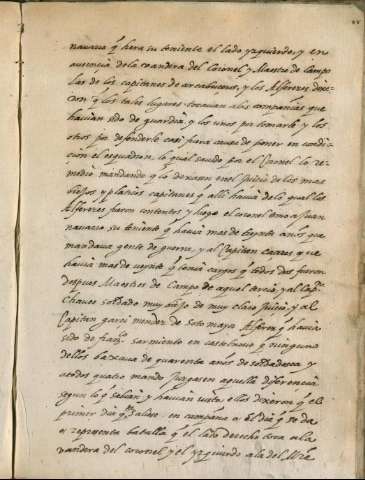 navarro q̃ hera su teniente el lado yzquierdo, y en
ausencia dela vandera del Coronel y Maestro de campo
las de los capitanes de arcabuzeros, y los Alferez dixe-
ron q̃ los tales lugares tocauan alas compañias que
hauian sido de guardia, y los unos por tomarlo y los
otros por defenderlo casi fuera causa de poner en condi-
cion el esquadron, lo qual sauido por el Coronel lo re-
medio mandando q̃ lo dexasen enel juicio delos mas
viejos y platicos capitanes q̃ alli hauia delo qual los
Alferezes fueron contentos y luego el coronel tomo a Juan
nauarro su teniente q̃ hauia mas de veynte años que
mandaua gente de guerra, y al Capitan que
hauia mas de veynte q̃ tenia cargos q̃ todos dos fueron
despues Maestros de Campo de aquel tercio, y al Capⁿ
Chaues soldado muy viejo de muy claro juicio y al
Capitan garci mendez de soto mayor Alferez q̃ hauia
sido de franᶜᵒ sarmiento en castelnouo q̃ ninguno
dellos baxaua de quarenta años de soldadesca y
atodos quatro mando juzgasen aquella diferencia
segun lo q̃ sabian y hauian uisto ellos dixeron q̃ el
primer dia q̃ salia en campaña o el dia q̃ se da
o representa batalla q̃ el lado derecho toca ala
vandera del coronel y el yzquierdo ala del Mrẽ